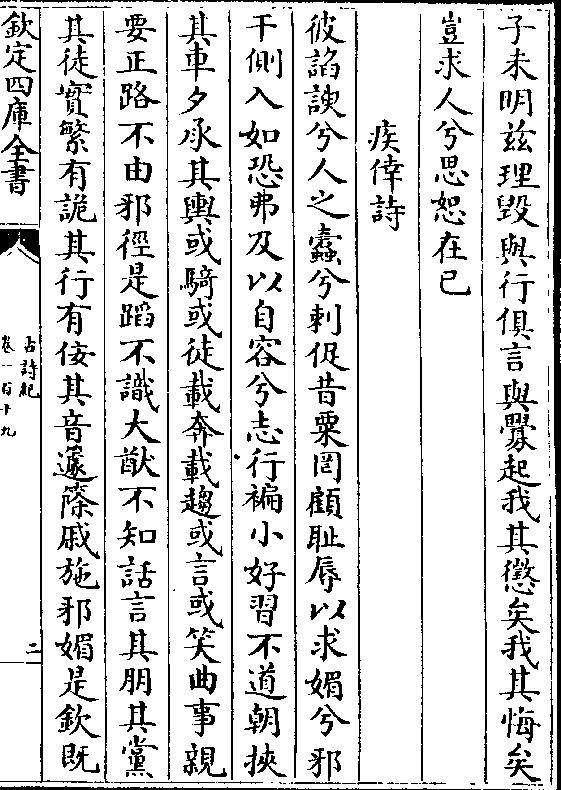 子未明茲理毀與行俱言與釁起我其懲矣我其悔矣
豈求人兮思恕在己
疾倖詩
彼諂諛兮人之蠹兮刺促昔粟罔顧耻辱以求媚兮邪
干側入如恐弗及以自容兮志行褊小好習不道朝挾
其車夕承其輿或騎或徒載奔載趨或言或笑曲事親
要正路不由邪徑是蹈不識大猷不知話言其朋其黨
其徒實繁有詭其行有佞其音籧篨戚施邪媚是欽既
欽定四庫全書
古詩紀
卷一百十九
二